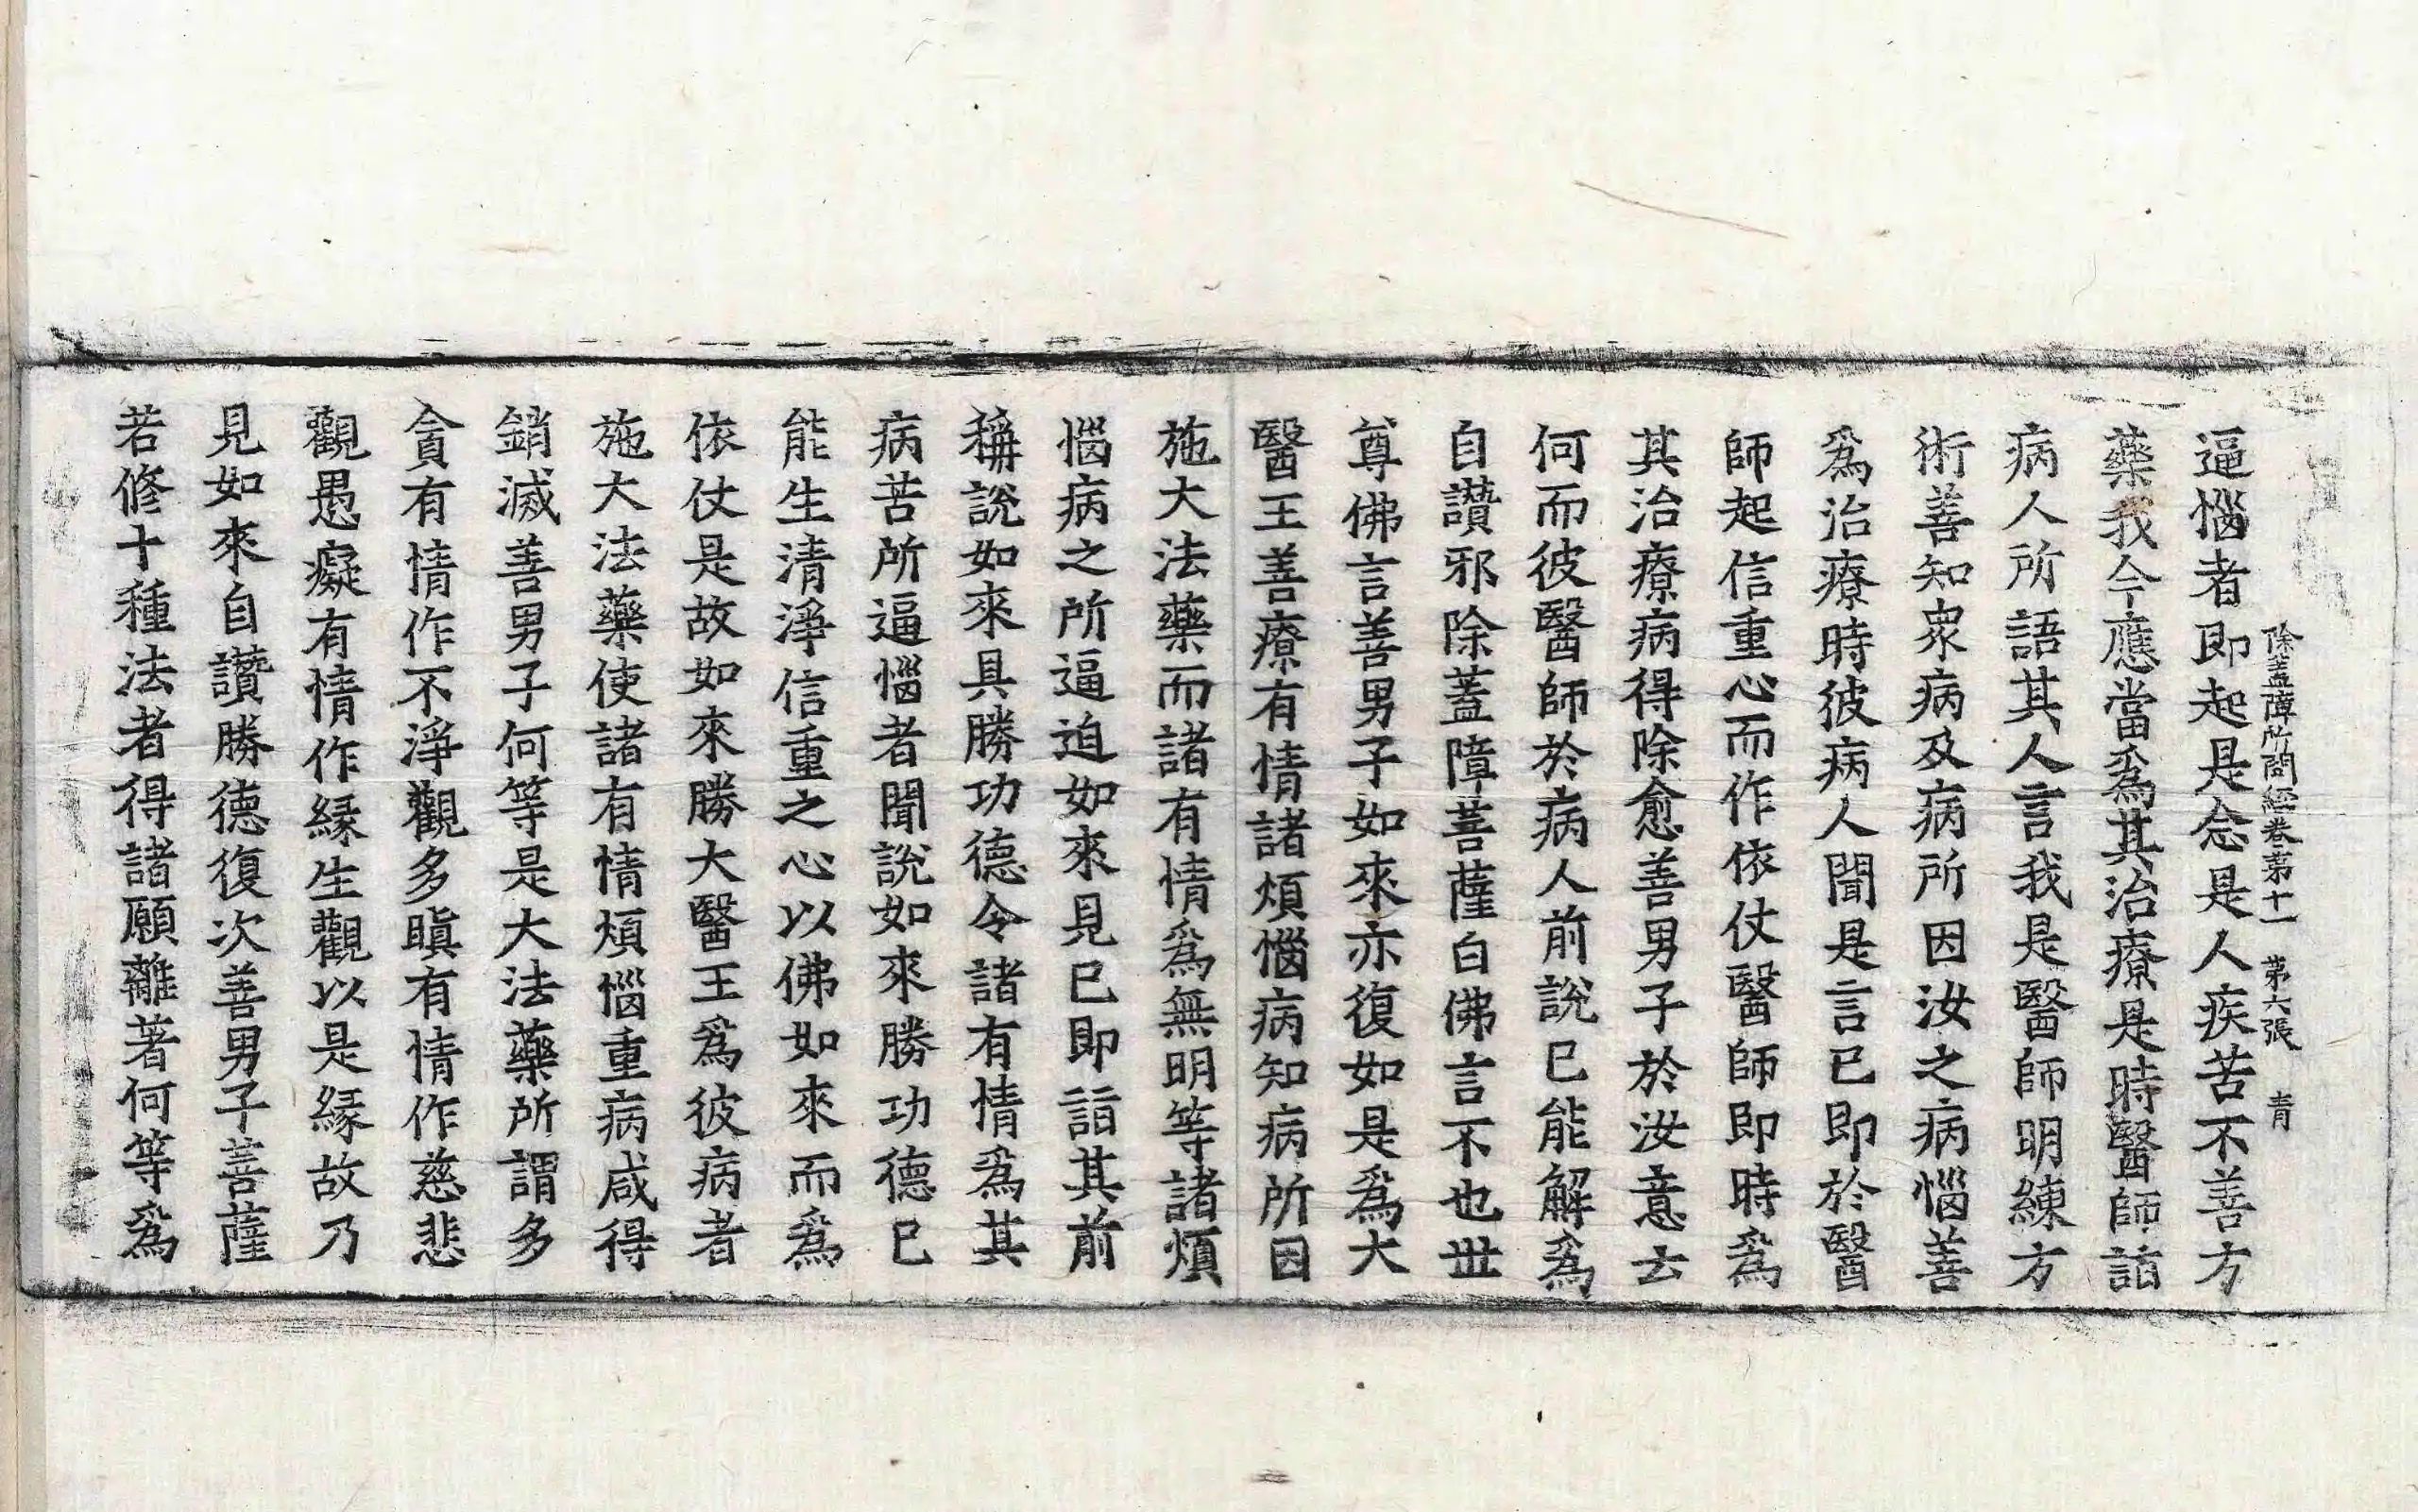 除蓋障所問經卷第十一 第六張 青
逼惱者即起是念是人疾苦不善方
藥我今應當爲其治療是時醫師詣
病人所語其人言我是醫師明練方
術善知衆病及病所因汝之病惱善
爲治療時彼病人聞是言已即於醫
師起信重心而作依仗醫師即時爲
其治療病得除愈善男子於汝意云
何而彼醫師於病人前說已能解爲
自讚邪除蓋障菩薩白佛言不也世
尊佛言善男子如來亦復如是爲大
醫王善療有情諸煩惱病知病所因
施大法藥而諸有情爲無明等諸煩
惱病之所逼迫如來見已即詣其前
稱說如來具勝功德令諸有情爲其
病苦所逼惱者聞說如來勝功德已
能生清淨信重之心以佛如來而爲
依仗是故如來勝大醫王爲彼病者
施大法藥使諸有情煩惱重病咸得
銷滅善男子何等是大法藥所謂多
貪有情作不淨觀多瞋有情作慈悲
觀愚癡有情作緣生觀以是緣故乃
見如來自讚勝德復次善男子菩薩
若修十種法者得諸願離著何等爲